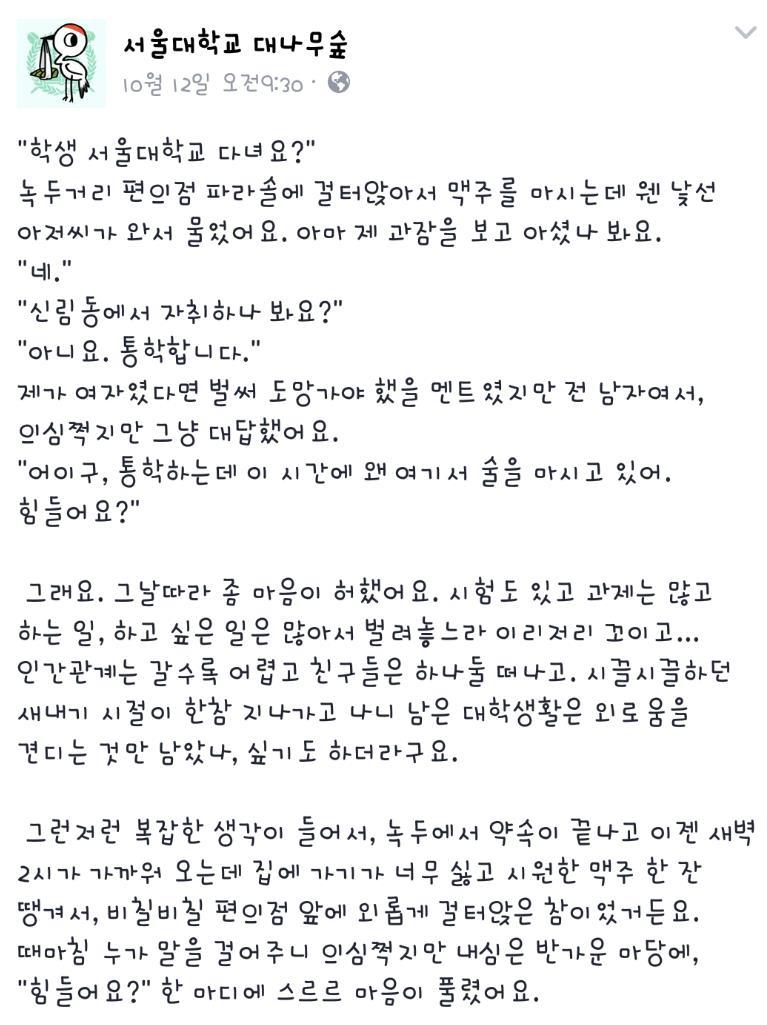 서울대학교 대나무숲
10월 12일 오전9:30 ·
"학생 서울대학교 다녀요?"
녹두거리 편의점 파라솔에 걸터앉아서 맥주를 마시는데 웬 낯선
아저씨가 와서 물었어요. 아마 제 과잠을 보고 아셨나 봐요.
"네."
"신림동에서 자취하나 봐요?"
"아니요. 통학합니다."
제가 여자였다면 벌써 도망가야 했을 멘트였지만 전 남자여서,
의심쩍지만 그냥 대답했어요.
"어이구, 통학하는데 이 시간에 왜 여기서 술을 마시고 있어.
힘들어요?"
그래요. 그날따라 좀 마음이 허했어요. 시험도 있고 과제는 많고
하는 일, 하고 싶은 일은 많아서 벌려놓느라 이리저리 꼬이고...
인간관계는 갈수록 어렵고 친구들은 하나둘 떠나고. 시끌시끌하던
새내기 시절이 한참 지나가고 나니 남은 대학생활은 외로움을
견디는 것만 남았나, 싶기도 하더라구요.
그런저런 복잡한 생각이 들어서, 녹두에서 약속이 끝나고 이젠 새벽
2시가 가까워 오는데 집에 가기가 너무 싫고 시원한 맥주 한 잔
땡겨서, 비칠비칠 편의점 앞에 외롭게 걸터앉은 참이었거든요.
때마침 누가 말을 걸어주니 의심쩍지만 내심은 반가운 마당에,
"힘들어요?" 한 마디에 스르르 마음이 풀렸어요.